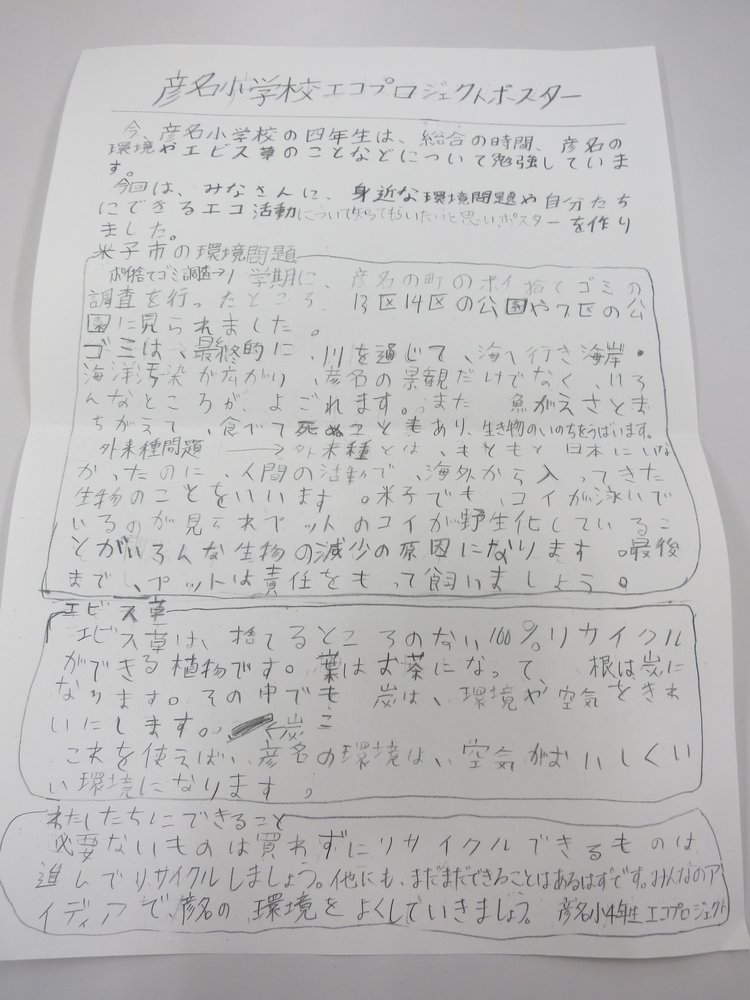 彦名小学校エコプロジェクトポスター
今、彦名小学校の四年生は、総合の時間、彦名の
環境やエビス草のことなどについて勉強していま
す。
今回は、みなさんに、身近な環境問題や自分たち
にできるエコ活動について知ってもらいたいと思い、ポスターを作り
ました。
米子市の環境問題
ポイ捨てゴミ調査→1学期に、彦名の町のポイ捨てゴミの
調査を行ったところ、13区14区の公園や7区の公
園に見られました。
ゴミは、最終的に、川を通じて、海へ行き海岸・
海洋汚染が広がり、彦名の景観だけでなく、いろ
んなところが、よごれます。また、魚がえさとま
ちがえて、食べて死ぬこともあり、生き物のいのちをうばいます。
外来種問題→外来種とは、もともと日本にいな
かったのに、人間の活動で、海外から入ってきた
生物のことをいいます。米子でも、コイが泳いで
いるのが見られペットのコイが野生化しているこ
とがいろんな生物の減少の原因になります。最後
まで、ペットは責任をもって飼いましょう。
エビス草
エビス草は、捨てるところのない100%リサイクル
ができる植物です。葉はお茶になって、根は炭に
なります。その中でも炭は、環境や空気をきれ
いにします。←炭
これを使えば、彦名の環境は、空気がおいしくい
い環境になります。
わたしたちにできること
必要ないものは買わずにリサイクルできるものは
進んでリサイクルしましょう。他にも、まだまだできることはあるはずです。みんなのア
イディアで、彦名の環境をよくしていきましょう。彦名小4年生エコプロジェクト